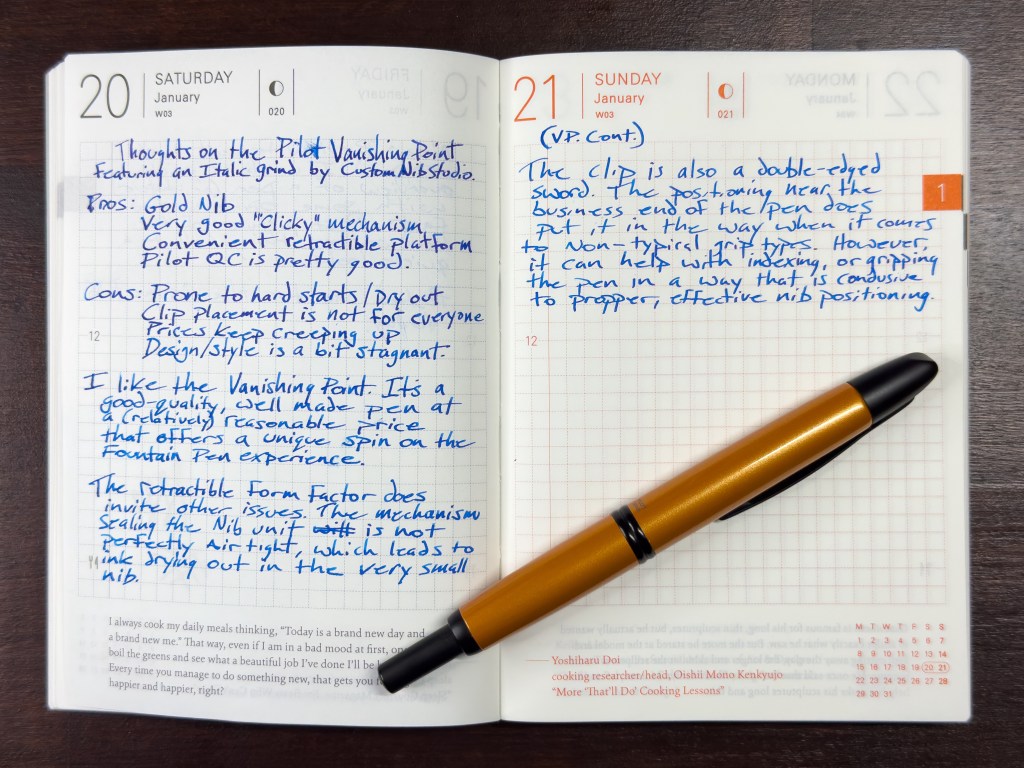 20 SATURDAY
January
W03
020
Thoughts on the Pilot Vanishing Point
Featuring an Italic grind by CustomNibStudio.
Pros: Gold Nib
Very good "Clicky" mechanism
Convenient retractible platform
Pilot QC is pretty good.
Cons: Prone to hard starts/Dry out
Clip placement is not for everyone
12
Prices keep creeping up
Design/style is a bit stagnant.
I like the Vanishing Point. It's a
good-quality, well made pen at
a (relatively) reasonable price
that offers a unique spin on the
Fountain Pen experience.
The retractible Form Factor does
invite other issues. The mechanism
sealing the Nib unit is not
perfectly Air tight, which leads to
ink drying out in the very small
nib.
I always cook my daily meals thinking, "Today is a brand new day and
a brand new me." That way, even if I am in a bad mood at first, on
boil the greens and see what a beautiful job I've done I'll be
Every time you manage to do something new, that gets you
happier and happier, right?
21 SUNDAY
January
W03
021
(V.P. Cont.)
The clip is also a double-edged
sword. The positioning near the
business end of the pen does
put it in the way when it comes
to Non-typiral grip types. However,
it can help with indexing, or gripping
the pen in a way that is condusive
to propper, effective nib positioning.
1
12
Yoshiharu Doi
cooking researcher/head, Oishii Mono Kenkyujo
"More 'That'll Do' Cooking Lessons"
M T W T F S S
1 2 3 4 5 6 7
8 9 10 11 12 13 14
15 16 17 18 19 20 21
22 23 24 25 26 27 28
29 30 31